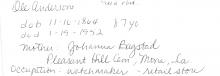 Ole Anderson
dob 11-10-1864 87yo
dod 1-19-1952
mother - Johanna Bagstad
Pleasant Hill Cem, More, Ia
occupation - watchmaker - retail store